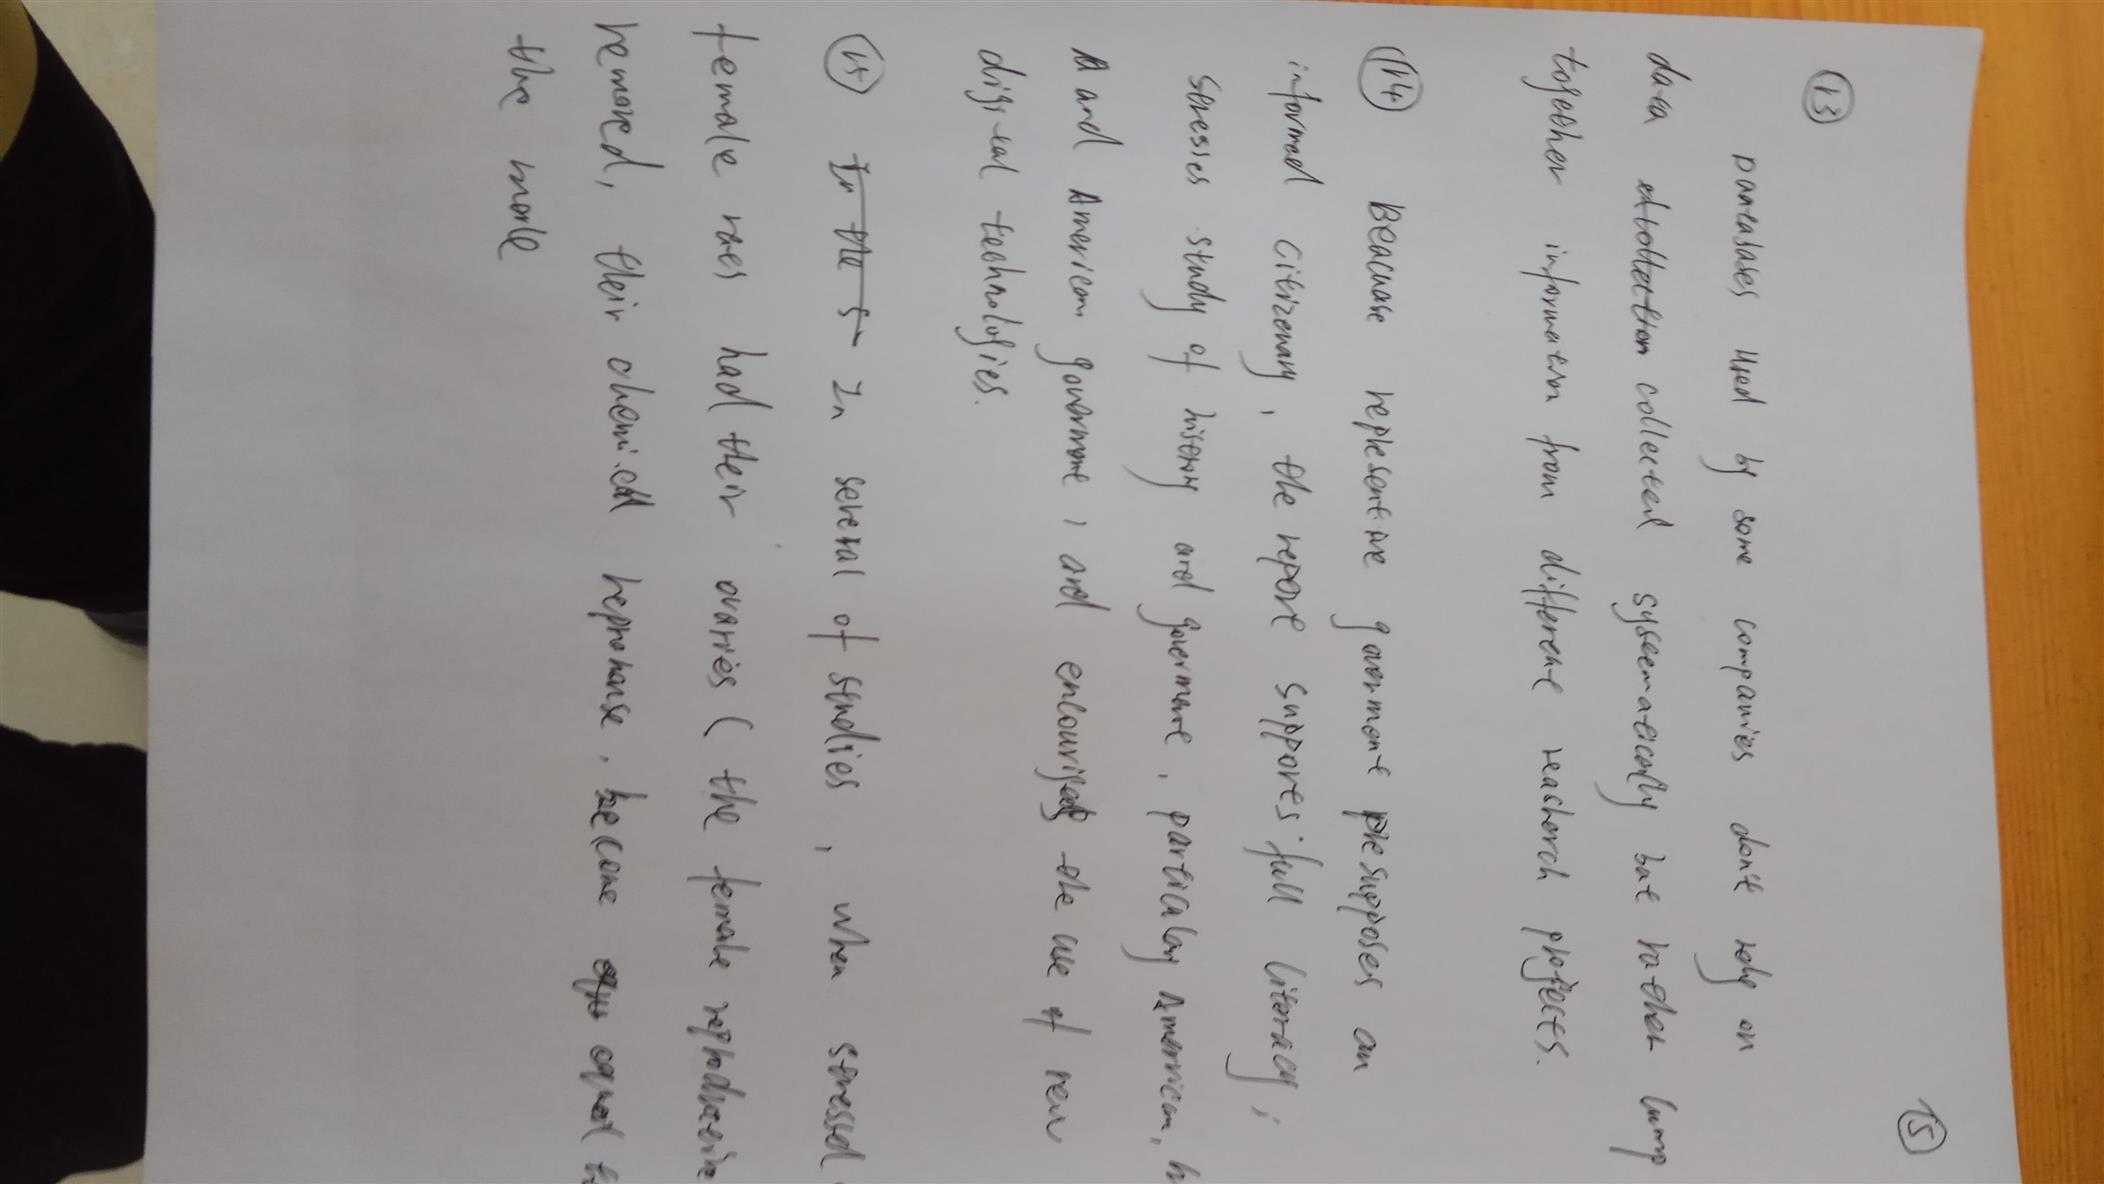 15
13
Darabases used by some companies don't rely on
data collection collected systematically but rather lump
together information from different reaserch projects.
14 Beacuase representive goverment presupposes an
informed citizenary, the report supports full literacy;
stresses study of history and goverment, particulay American,
and American goverment, and encouriges the use of new
digital technologies.
15 In the s In several of studies, when stressed
female rats had their ovaries (the female reproductive
removed, their chemical reprohonse, become equal to
the male